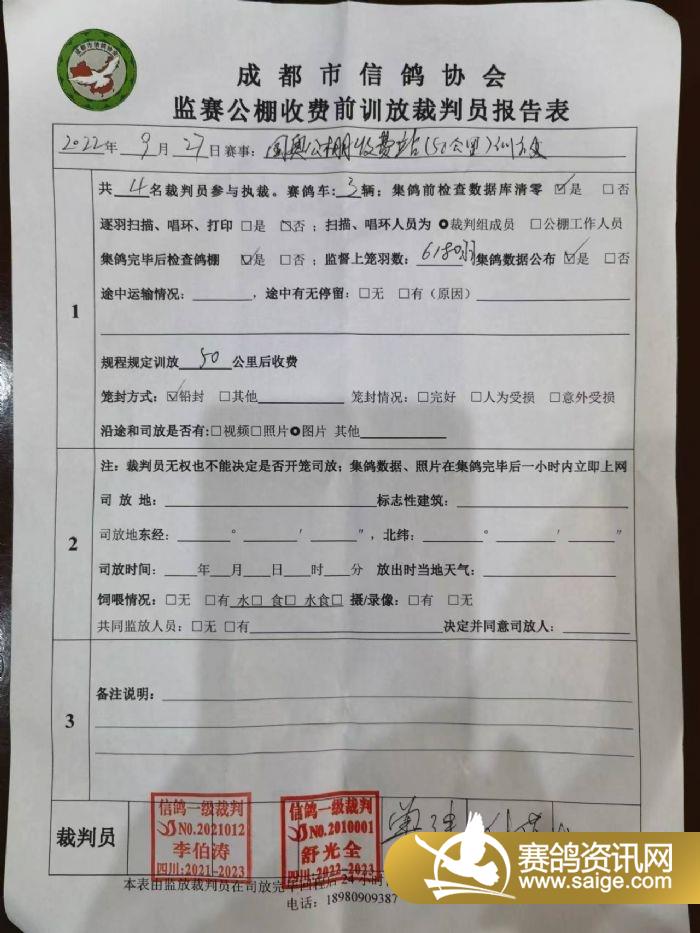 成都市信鸽协会
成都市信鸽协会
监赛公棚收费前训放裁判员报告表
2022年 9月 27日赛事: 国奥公棚收费站(50公里)训放
共 4名裁判员参与执裁。赛鸽车: 3辆; 集鸽前检查数据库清零 ☑是 □否
逐羽扫描、唱环、打印 □是 ☑否; 扫描、唱环人员为 ●裁判组成员 □公棚工作人员
集鸽完毕后检查鸽棚 ☑是 □否; 监督上笼羽数: 6180羽 集鸽数据公布 ☑是 □否
途中运输情况:______, 途中有无停留: □无 □有(原因)
1
规程规定训放 50 公里后收费
笼封方式: ☑铅封 □其他 笼封情况: □完好 □人为受损 □意外受损
沿途和司放是否有:□视频□照片●图片 其他
注: 裁判员无权也不能决定是否开笼司放; 集鸽数据、照片在集鸽完毕后一小时内立即上网
司 放 地: 标志性建筑:
2
司放地东经: ° ′ ″, 北纬: ° ′ ″
司放时间: 年 月 日 时 分 放出时当地天气:
饲喂情况: □无 □有 水□ 食□ 水食□ 摄/录像: □有 □无
共同监放人员: □无 □有 决定并同意司放人:
备注说明:
3
裁判员
信鸽一级裁判
NO.2021012
李伯涛
四川:2021-2023
信鸽一级裁判
NO.2010001
舒光全
四川:2022-2023
本表由监放裁判员在司放完毕回程后24小时
电话: 18980909387
赛鸽资讯网
www.saige.com